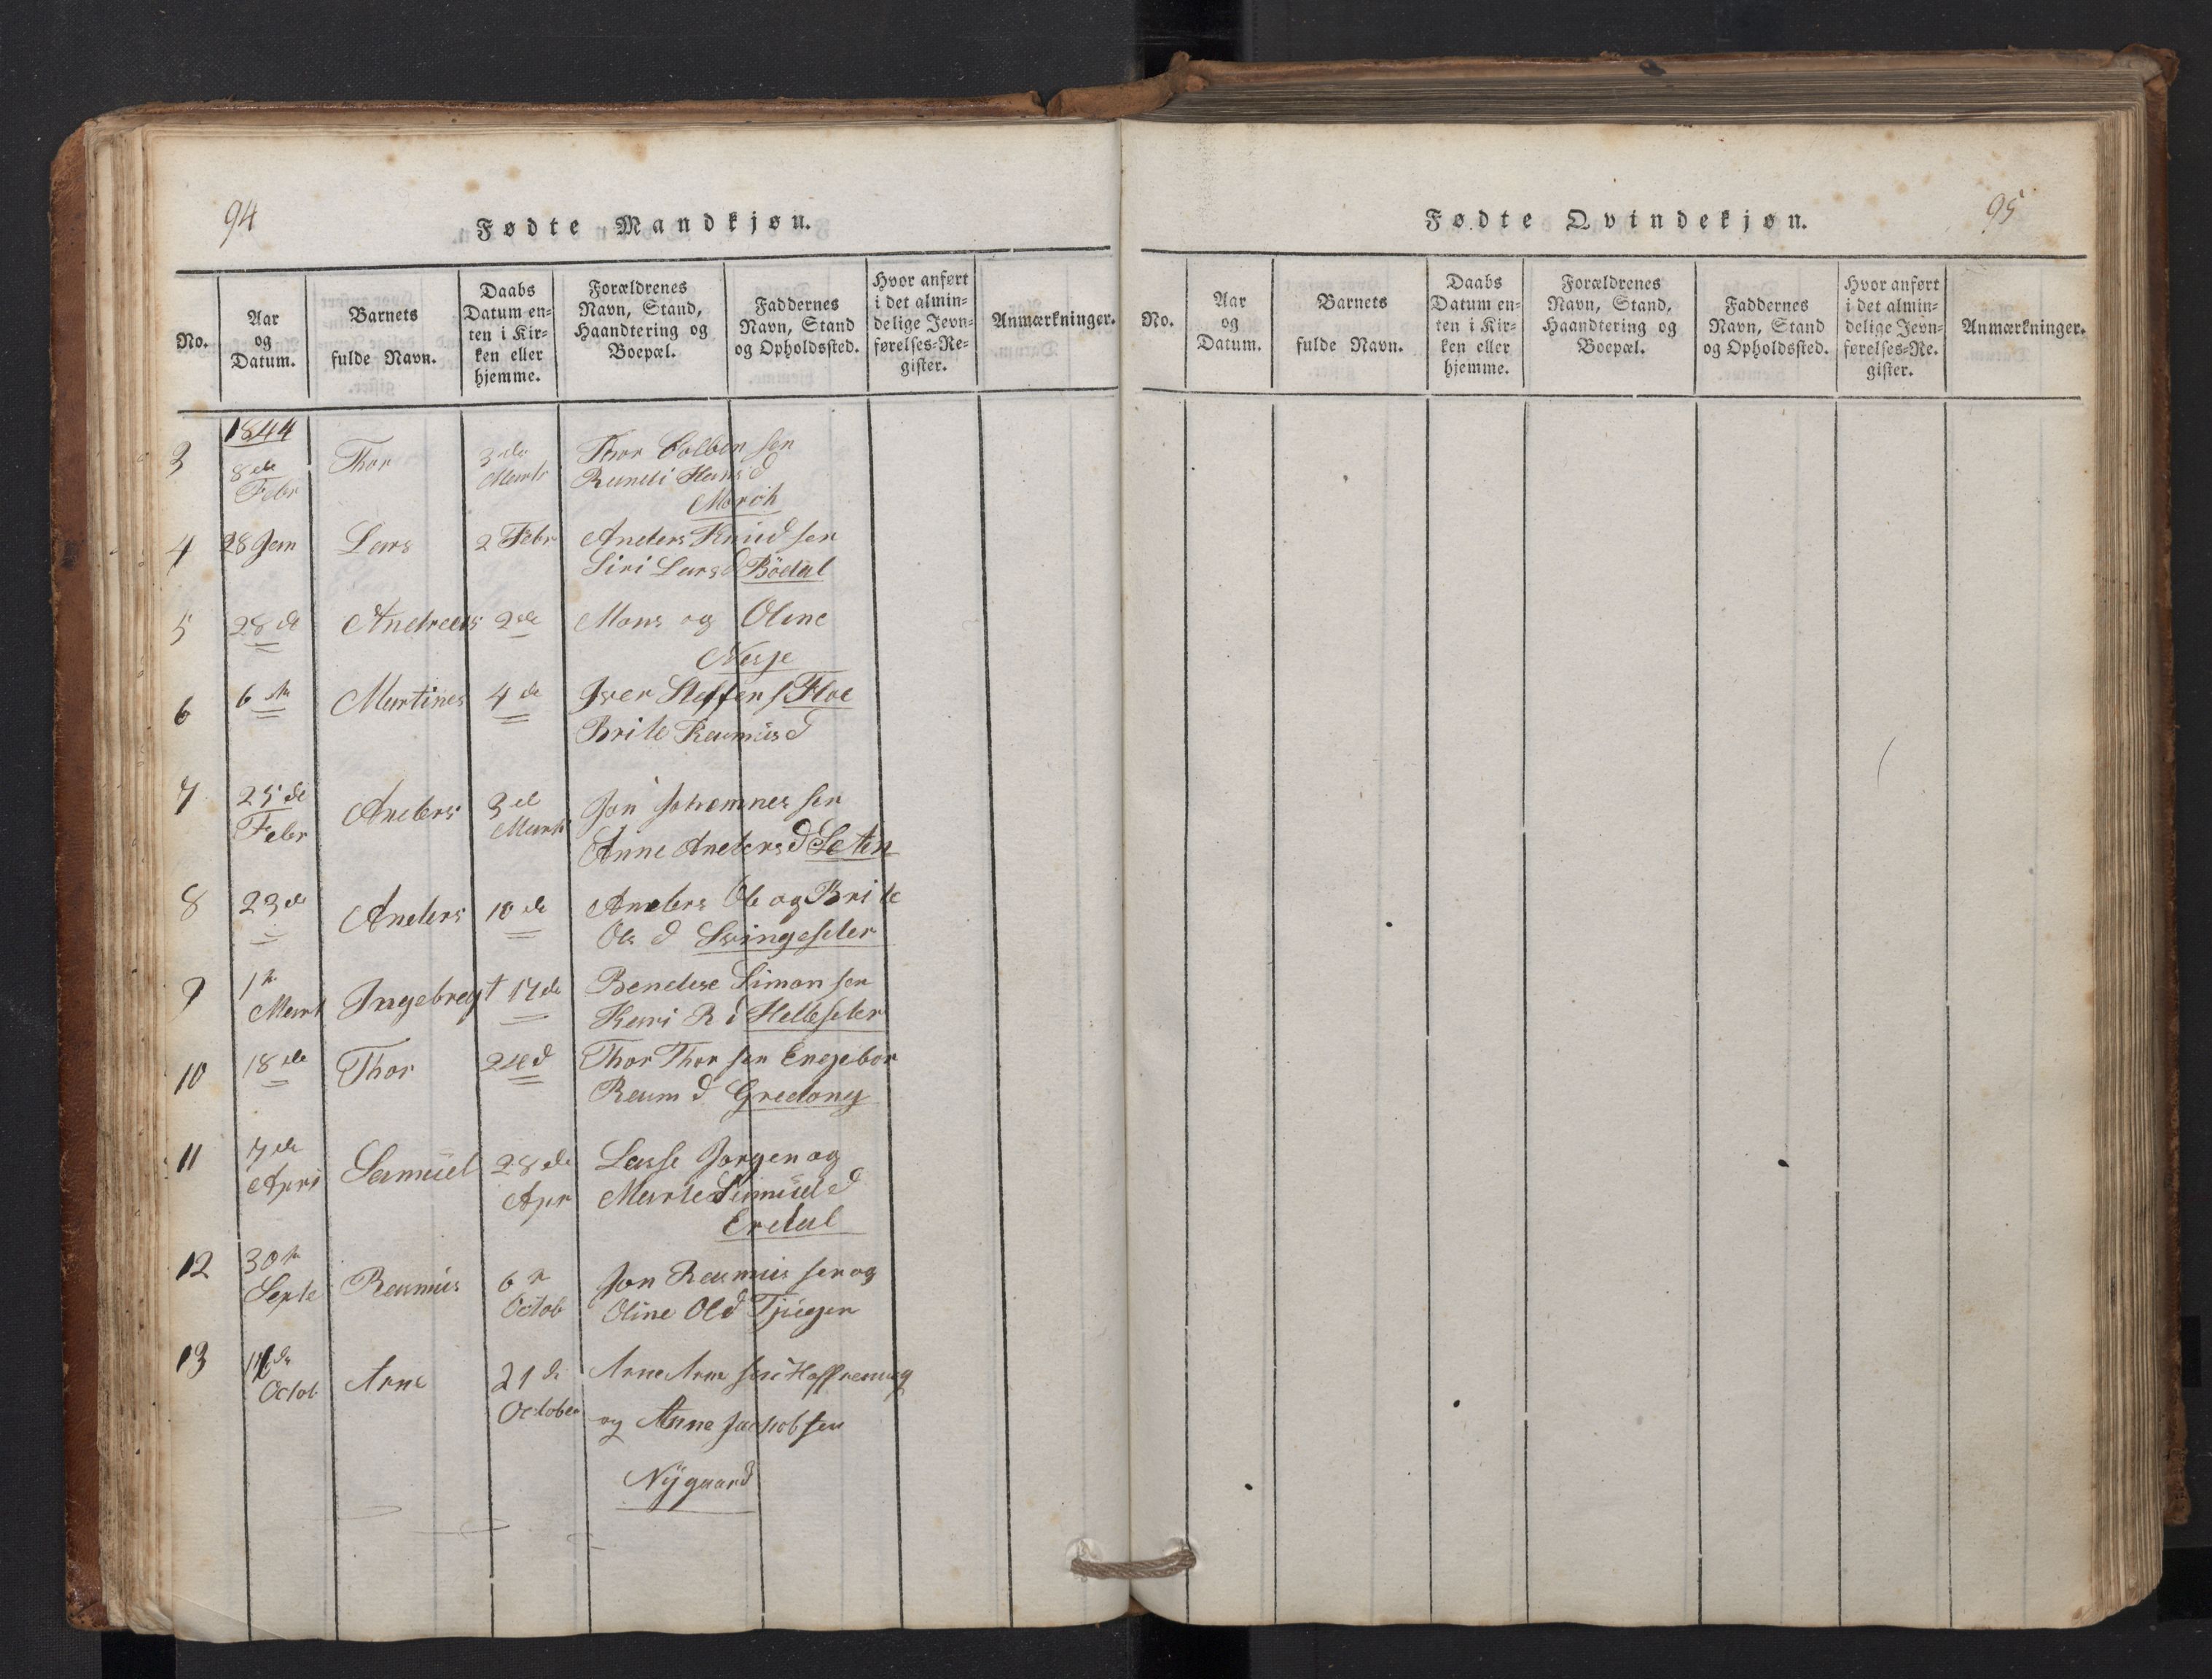 94
Fødte Mandkjøn.
No.
Aar
og
Datum.
Barnets
fulde Navn.
Daabs
Datum en-
ten i Kir-
ken eller
hjemme.
Forældrenes
Navn, Stand,
Haandtering og
Boepæl.
Faddernes
Navn, Stand
og Opholdssted.
Hvor anført
i det almin-
delige Jevn-
førelses-Re-
gister.
Anmærkninger.
1844
3 8de Thor 3de Thor Colben sen
Febr Marts Hans d
Moroh
4 28 Jan Lars 2 Febr Anders Knud sen
Siri Lars d Bödal
5 28 de Andreas 2de Mons og Oline
Nesje
6 6te Martines 4 de Iver Steffen s Floe
Brite Rasmus d
7 25 de Anders 3de Jon Johannes sen
Febr Marts
Anne Anders d Leten
8 23 de Anders 10 de Anders Ole og Brite
Ols d Svingeseter
9 1te Ingebregt 17de Bendix Simon sen
Mart Kari R d Helleseter
10 18de Thor 24d Thor Thor sen Engebor
Rasm d Gredong
11 7de Samuel 28de Lasse Jorgen og
Apri Apr Marte Samuel d
Erdal
12 30te Rasmus 6te Jon Rasmus sen og
Septe Octob Oline Ol d Tjugen
13 Arne 21 de Arne Arne sen
Octob October og Anne Jackob sen
Nÿgaard
95
Fødte Qvindekjøn.
No.
Aar
og
Datum.
Barnets
fulde Navn.
Daabs
Datum en-
ten i Kir-
ken eller
hjemme.
Forældrenes
Navn, Stand,
Haandtering og
Boepæl.
Faddernes
Navn, Stand
og Opholdssted.
Hvor anført
i det almin-
delige Jevn-
førelses-Re-
gister.
Anmærkninger.